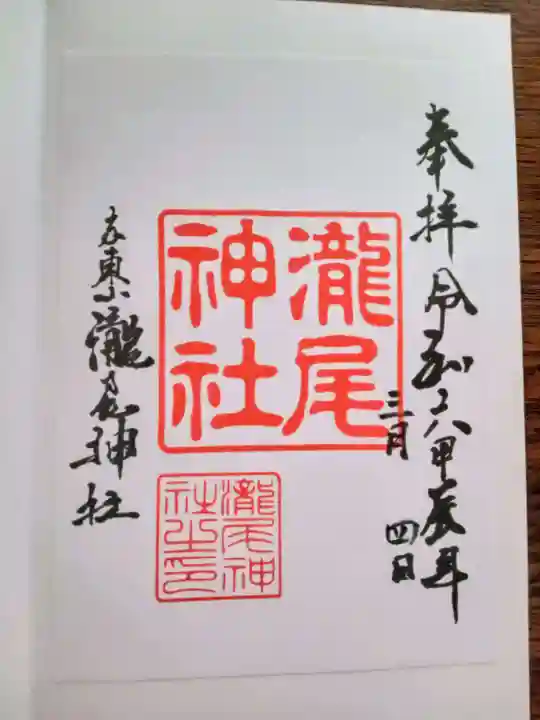 奉拝 令和六甲辰年
三月
四日
瀧尾
神社
瀧尾神
社之印
京東 瀧尾神社